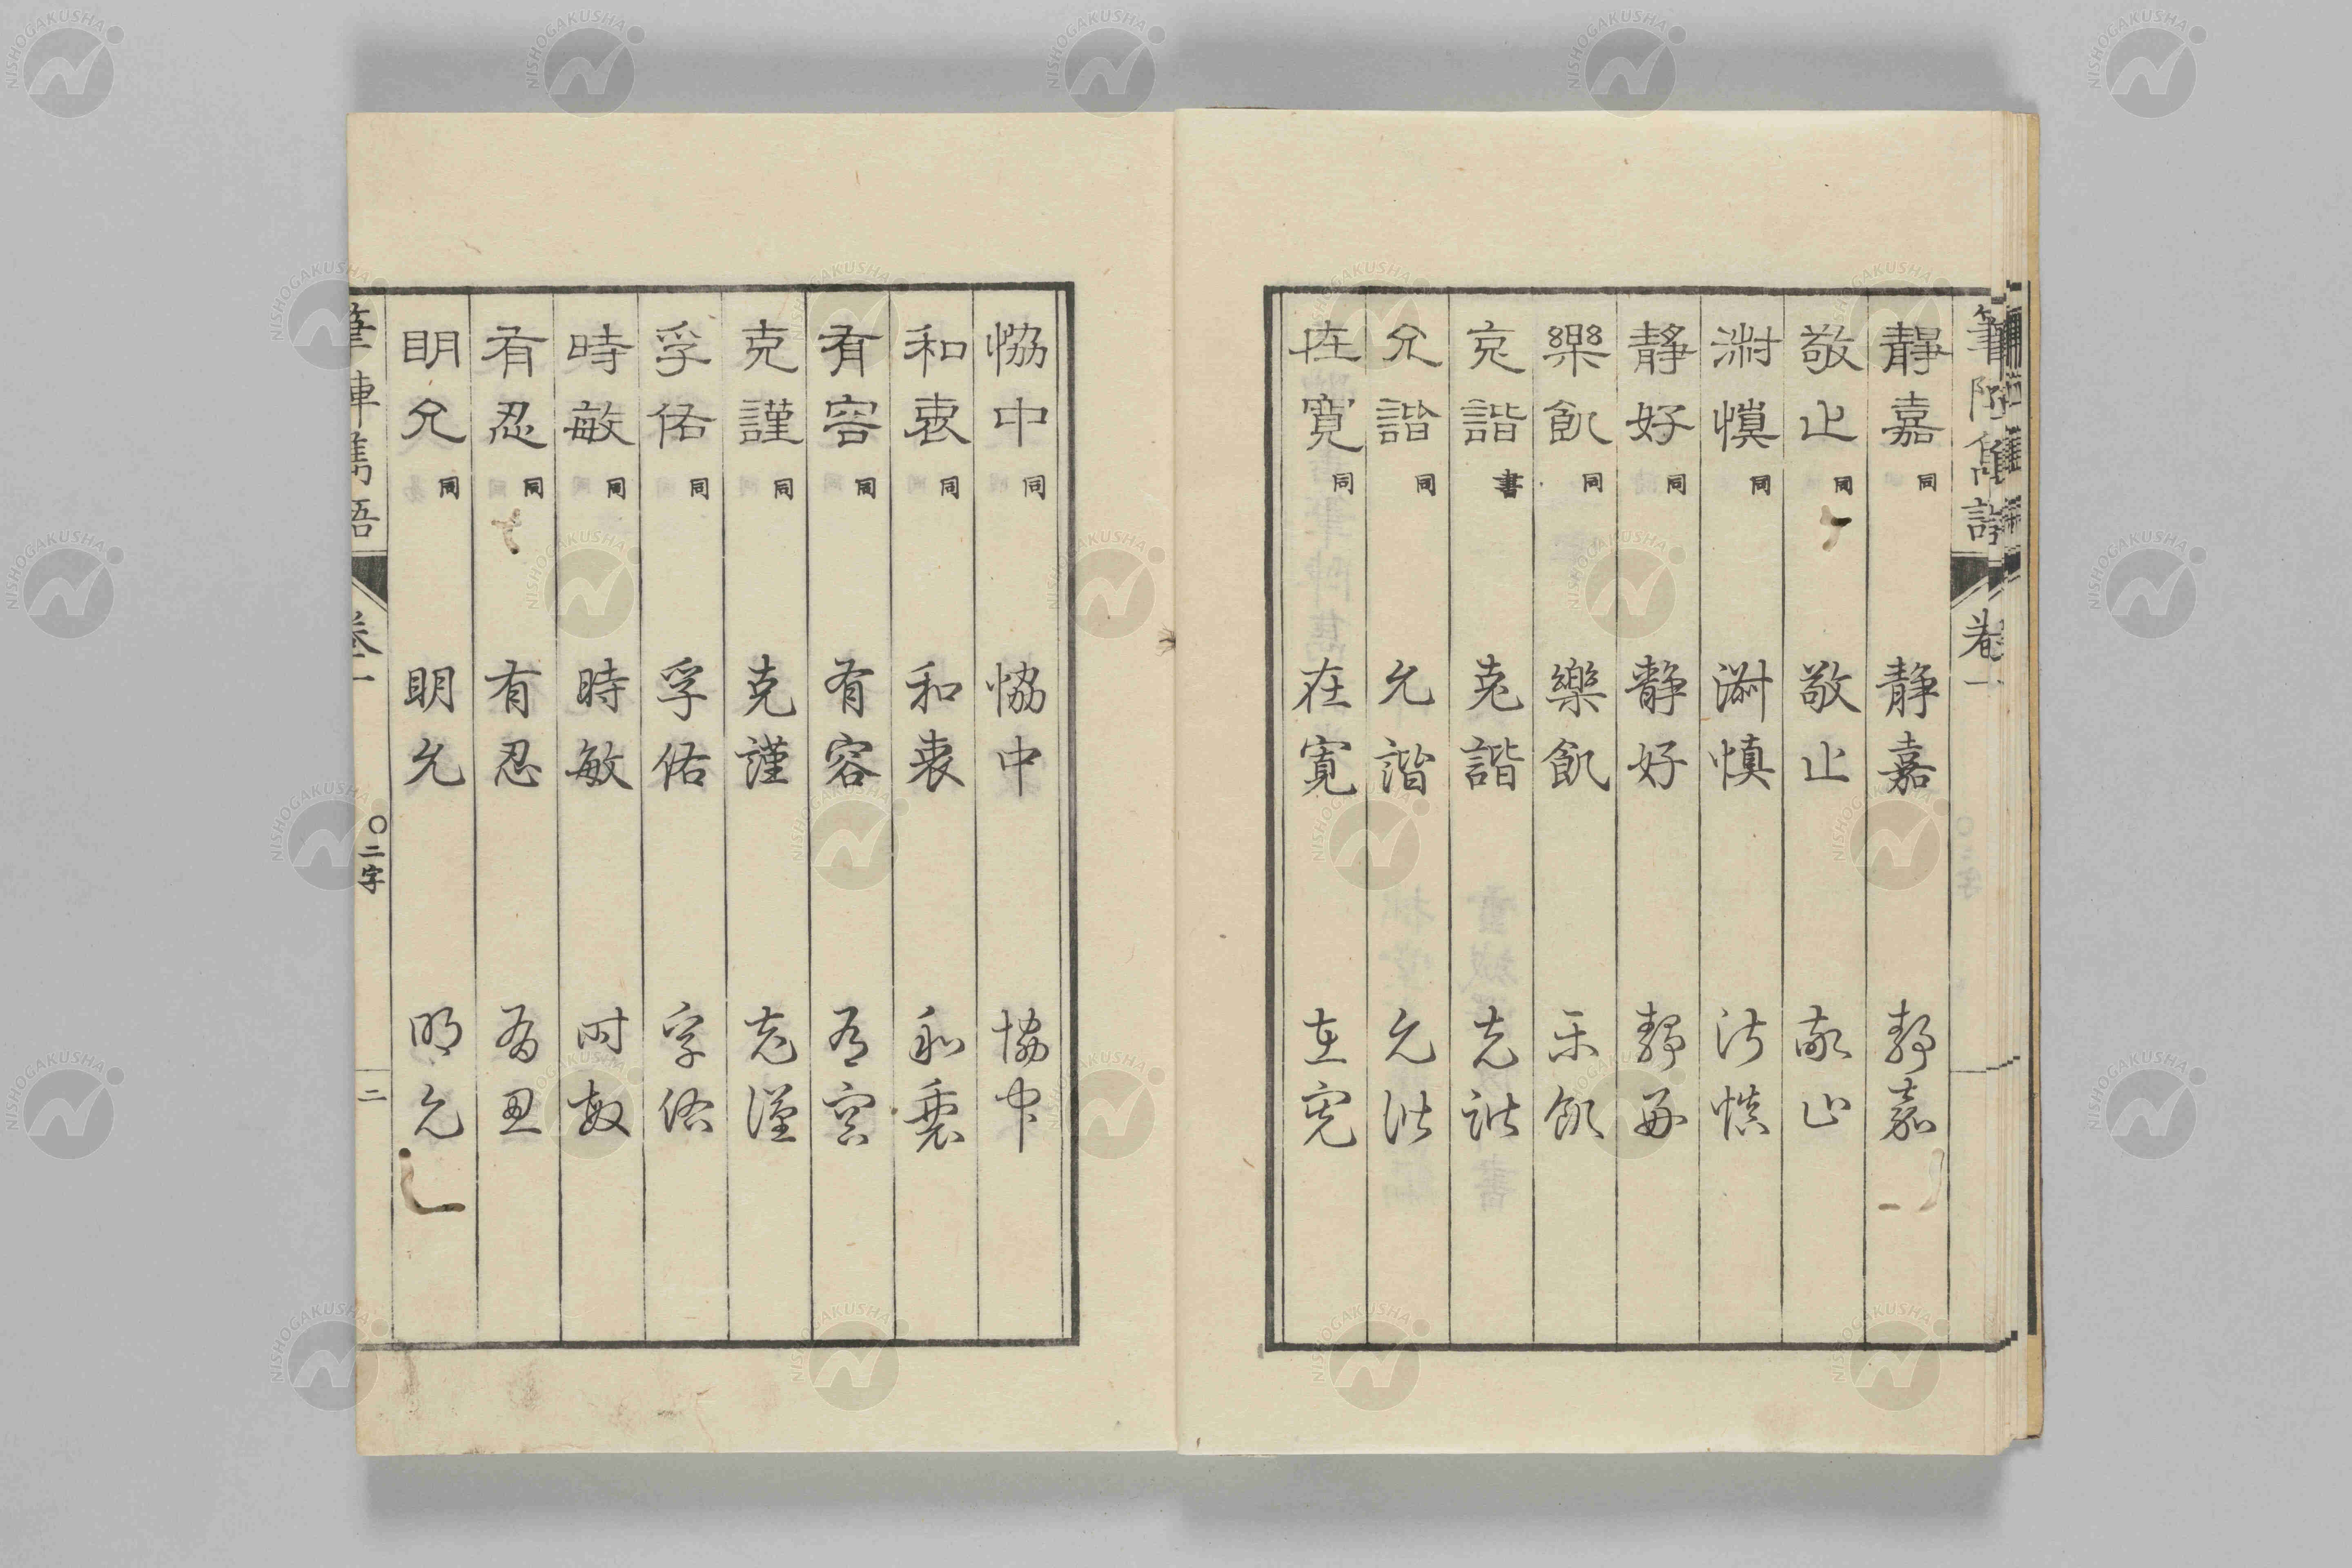 筆陣雋語 卷一
靜嘉 同 靜嘉 靜嘉
敬止 同 敬止 敬止
淑慎 同 淑慎 淑慎
靜好 同 靜好 靜好
樂飢 同 樂飢 樂飢
克諧 書 克諧 克諧
允諧 同 允諧 允諧
在寬 同 在寬 在寬
恊中 同 恊中 協中
和衷 同 和衷 和衷
有容 同 有容 有容
克謹 同 克謹 克謹
孚佑 同 孚佑 孚佑
時敏 同 時敏 時敏
有忍 同 有忍 有忍
眀允 同 眀允 明允
筆陣雋語 卷一 〇二字 二
NISHOGAKUSHA